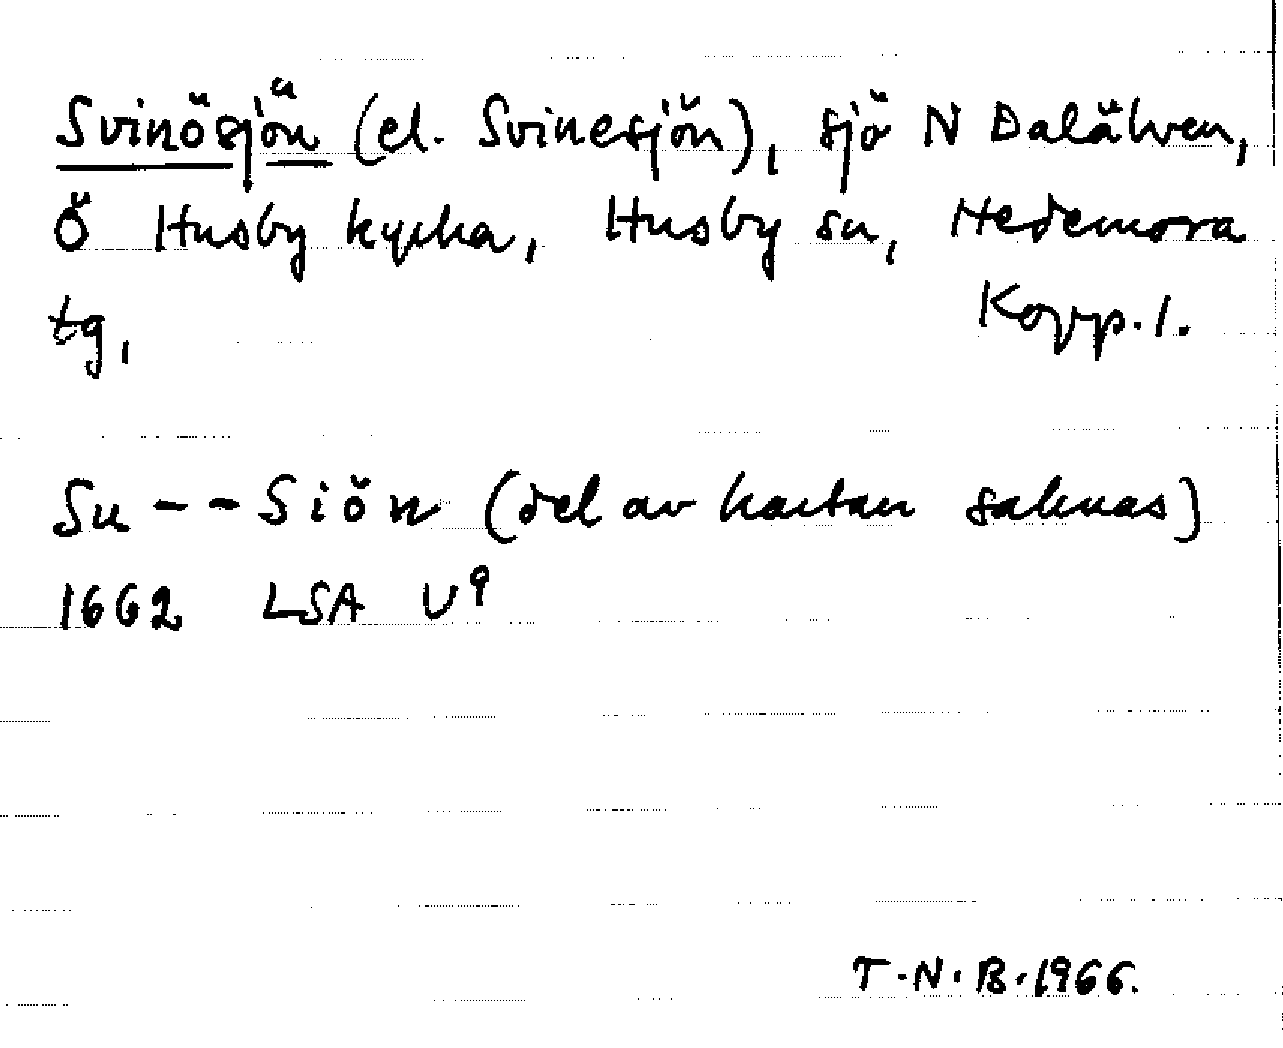 Svinösjön (el. Svinesjön), sjö N Dalälven,
Ö Husby kyrka, Husby sn, Hedemora
tg, Kopp. l.
Su -- Siön (del av kartan saknas)
1662 LSA U9
T.N.B. 1966.